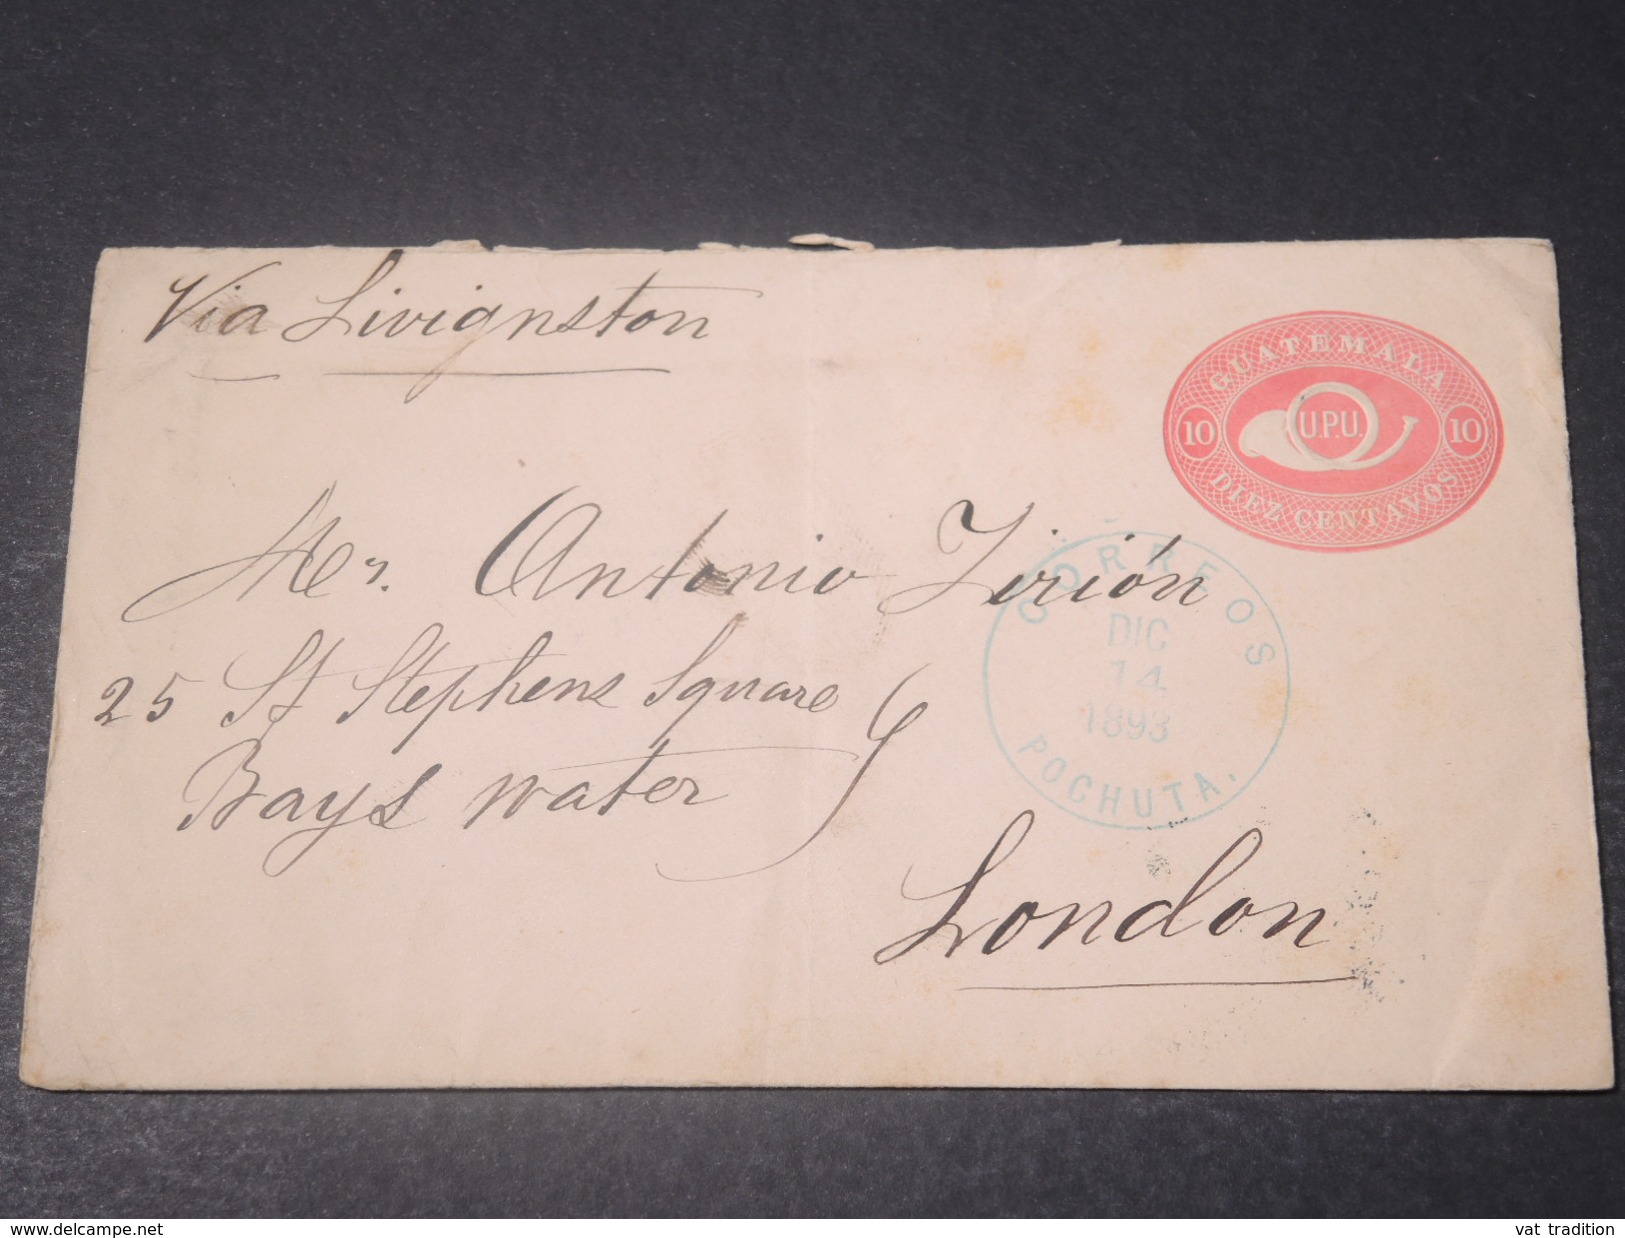 Via Livignston
GUATEMALA
10 U.P.U. 10
DIEZ CENTAVOS
Mr. Antonio Tirión
25 St Stephens Square
Bays water
London
CORREOS
DIC
14
1893
POCHUTA.
www.delcampe.net
vat tradition